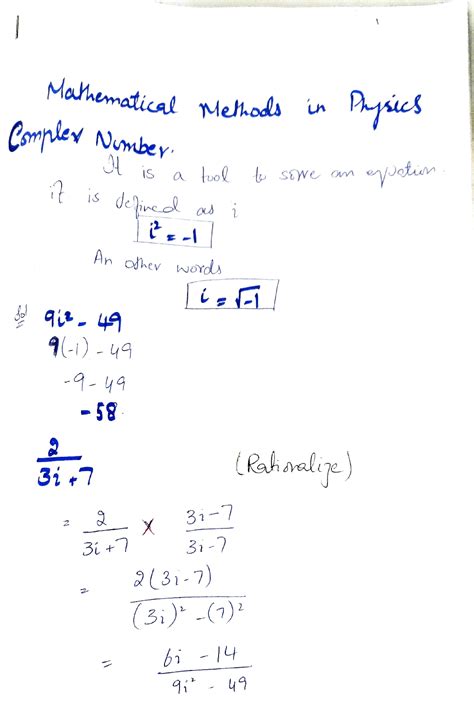 Mathematical Methods in Physics
Complex Number.
It is a tool to solve an equation.
it is defined as i
i² = -1
An other words
i = √-1
Sol 9i² - 49
9(-1) - 49
-9 - 49
-58.
2/(3i+7) (Rationalize)
= 2/(3i+7) × (3i-7)/(3i-7)
= 2(3i-7)/((3i)² - (7)²)
= (6i - 14)/(9i² - 49)